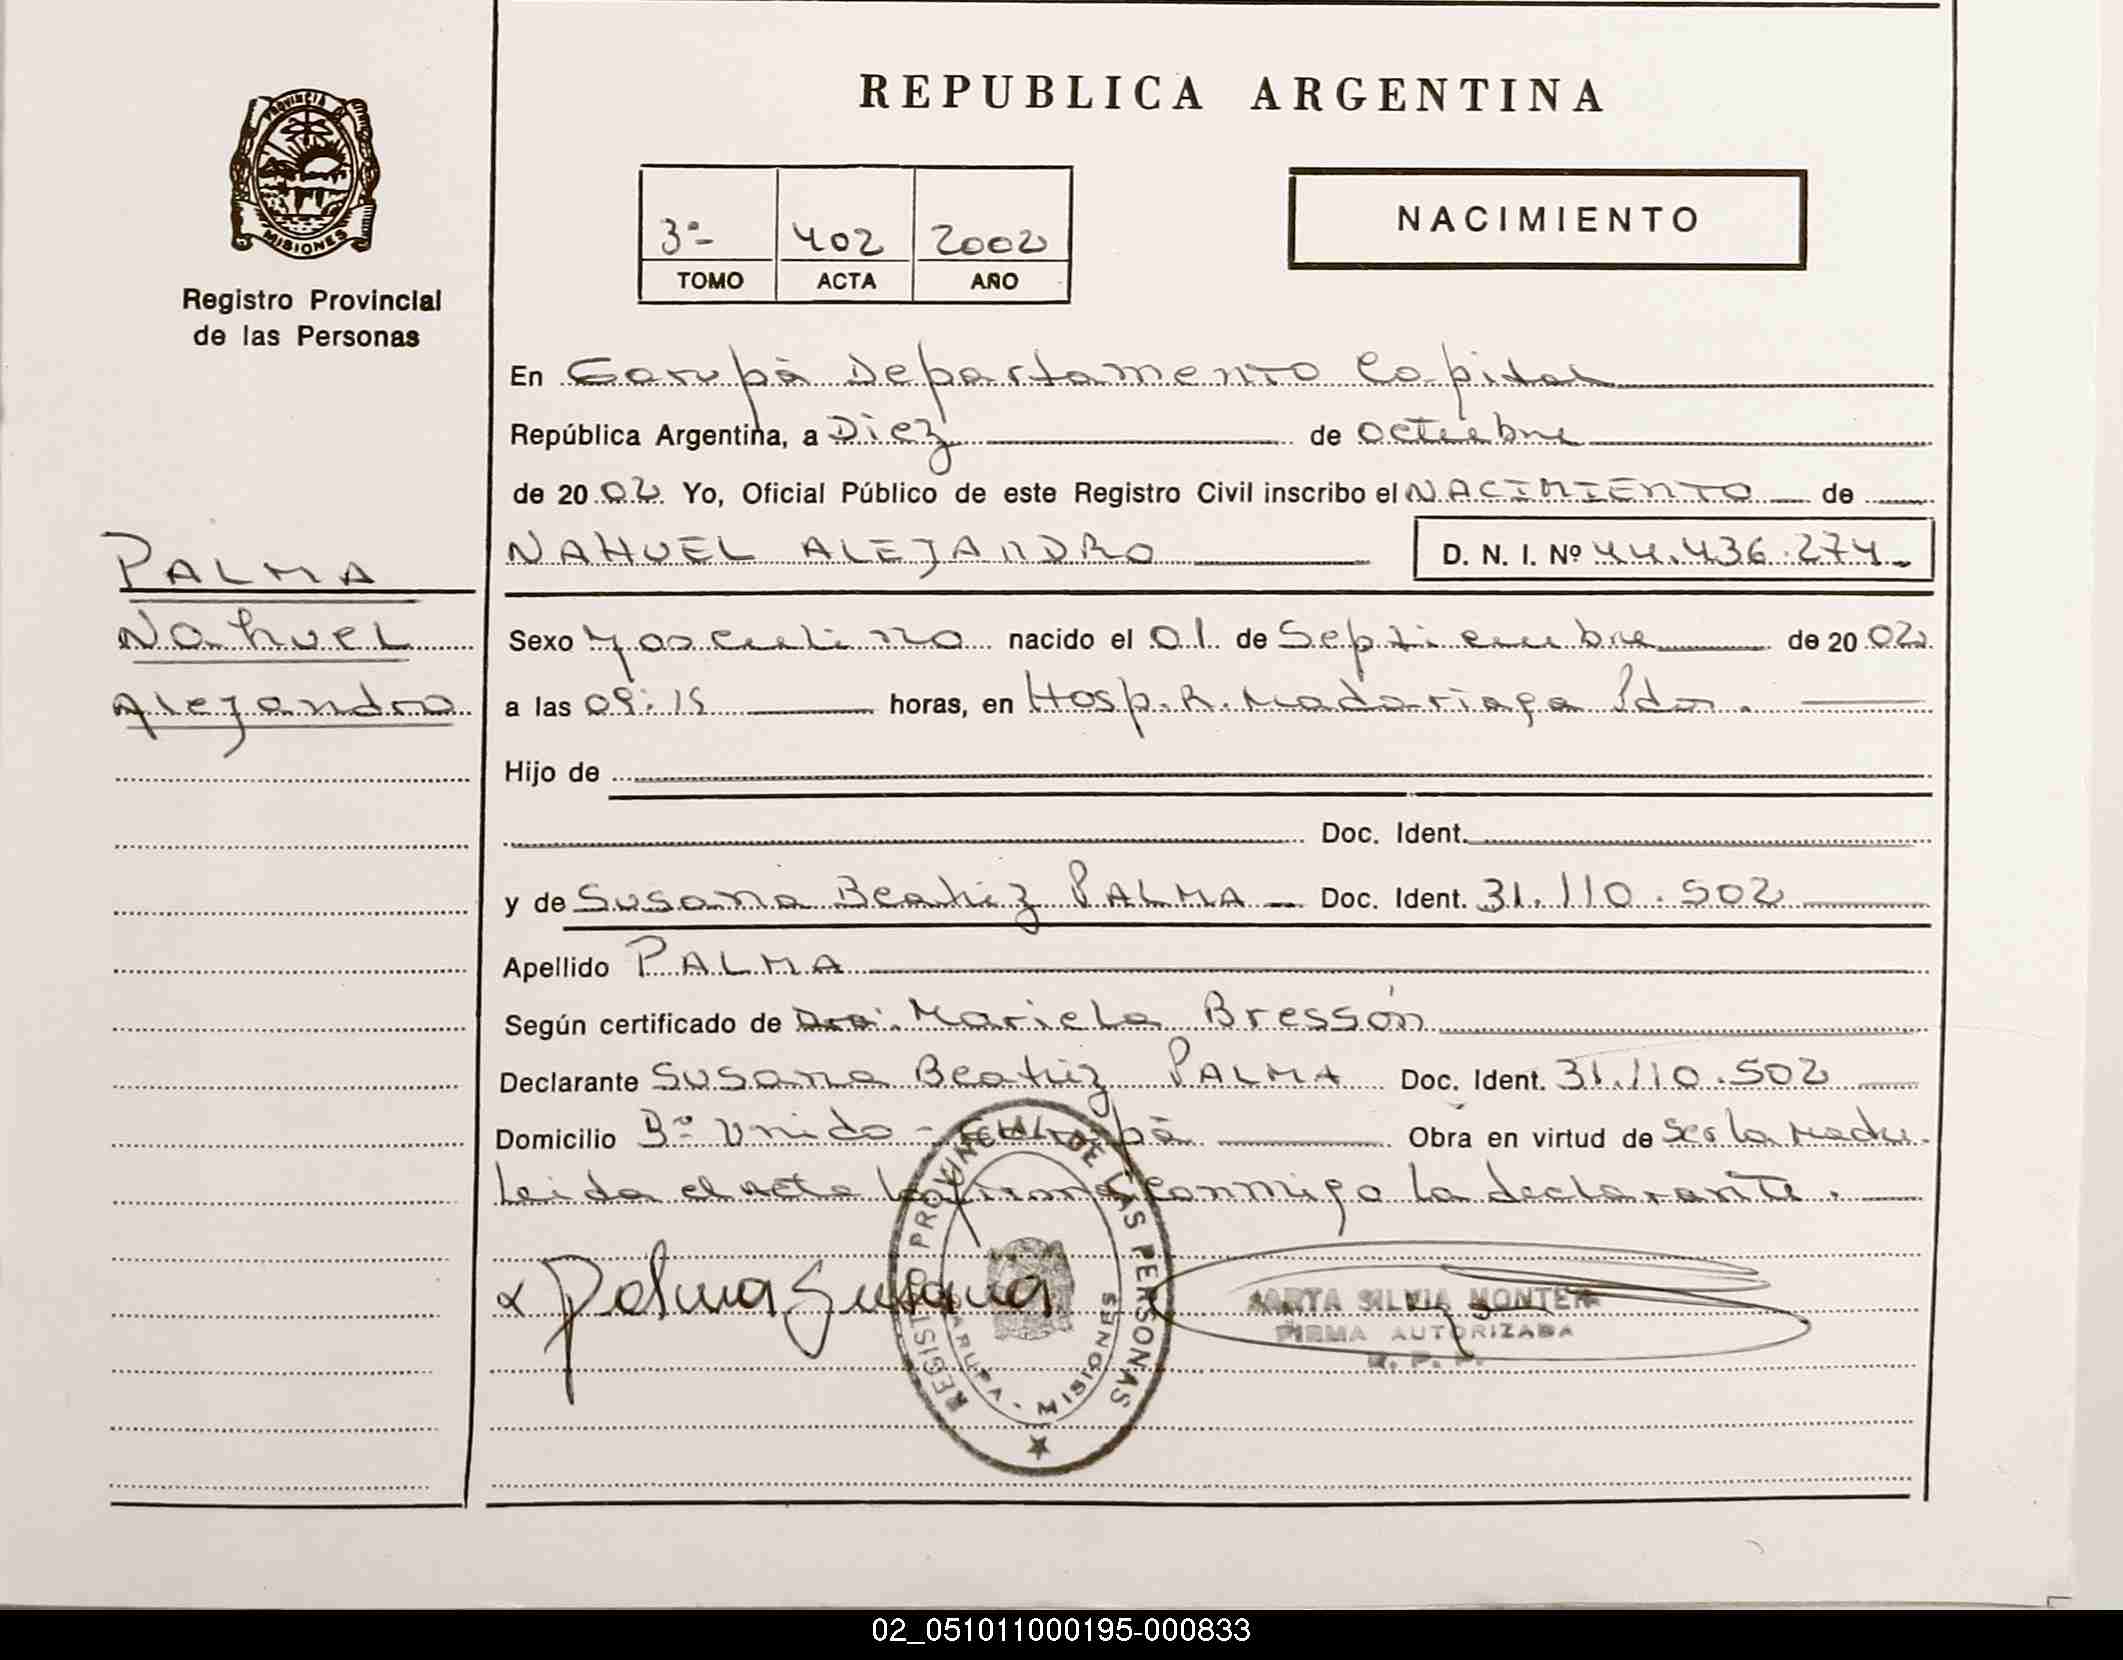 REPUBLICA ARGENTINA
PROVINCIA DE
MISIONES
Registro Provincial
de las Personas
3º 402 2002
TOMO ACTA AÑO
NACIMIENTO
En Garupá Departamento Capital
República Argentina, a Diez de octubre
de 2002. Yo, Oficial Público de este Registro Civil inscribo el NACIMIENTO de
NAHUEL ALEJANDRO D. N. I. Nº 44.436.274.
PALMA
Nahuel
Alejandro
Sexo Masculino nacido el 01 de Septiembre de 2002
a las 09:15 horas, en Hosp. R. Madariaga Pdas.
Hijo de
Doc. Ident.
y de Susana Beatriz PALMA Doc. Ident. 31.110.502
Apellido PALMA
Según certificado de Dra. Mariela Bressón
Declarante Susana Beatriz PALMA Doc. Ident. 31.110.502
Domicilio Bº Unido - Garupá Obra en virtud de ser la Madre.
Leida el acta la firma conmigo la declarante.
Palma Susana
REGISTRO PROVINCIAL DE LAS PERSONAS
GARUPA - MISIONES
SILVIA MONTERO
FIRMA AUTORIZADA
R. P. P.
02_051011000195-000833